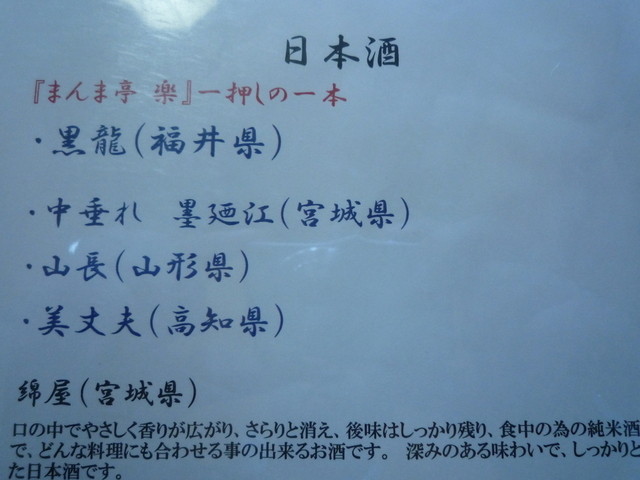 日本酒
『まんま亭 楽』一押しの一本
・黒龍(福井県)
・中垂れ 墨廼江(宮城県)
・山長(山形県)
・美丈夫(高知県)
綿屋(宮城県)
口の中でやさしく香りが広がり、さらりと消え、後味はしっかり残り、食中の為の純米酒
で、どんな料理にも合わせる事の出来るお酒です。 深みのある味わいで、しっかりと
た日本酒です。